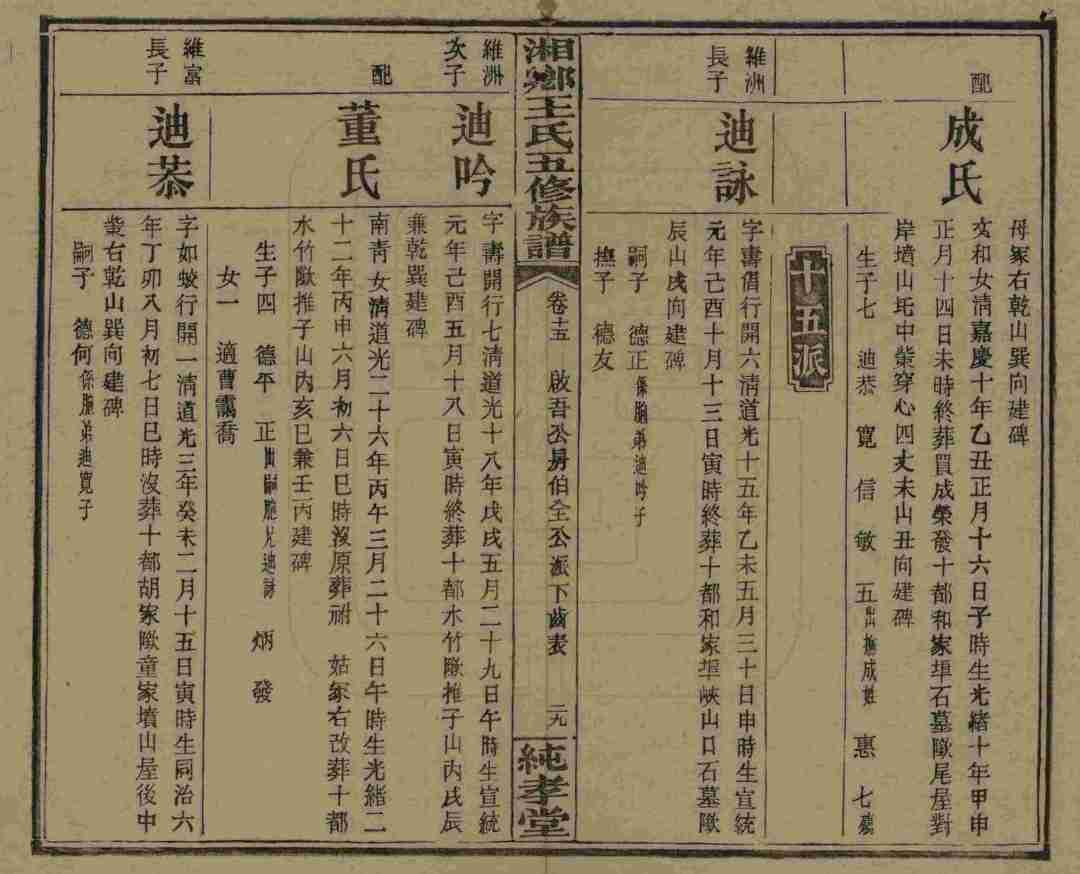 母冢右乾山巽向建碑
配
成氏
文和女清嘉慶十年乙丑正月十六日子時生光緒十年甲申
正月十四日未時終葬買成榮發十都和家垻石墓墈尾屋對
岸墳山圫中塋穿心四丈未山丑向建碑
生子七 迪恭 寬 信 敏 五出撫成姓 惠 七殤
十五派
維洲
長子
迪詠
字壽倡行開六清道光十五年乙未五月三十日申時生宣統
元年己酉十月十三日寅時終葬十都和家垻峽山口石墓墈
辰山戌向建碑
嗣子 德正係胞弟迪吟子
撫子 德友
湘鄉王氏五修族譜
卷十五
啟吾公房伯全公派下齒表
二九
純孝堂
維洲
次子
迪吟
字壽開行七清道光十八年戊戌五月二十九日午時生宣統
元年己酉五月十八日寅時終葬十都水竹墈推子山內戌辰
兼乾巽建碑
配
董氏
南青女清道光二十六年丙午三月二十六日午時生光緒二
十二年丙申六月初六日巳時沒原葬祔 姑冢右改葬十都
水竹墈推子山內亥巳兼壬丙建碑
生子四 德平 正出嗣胞兄迪詠 炳 發
女一 適曹靄喬
維富
長子
迪恭
字如蛟行開一清道光三年癸未二月十五日寅時生同治六
年丁卯八月初七日巳時沒葬十都胡家墈童家墳山屋後中
塋右乾山巽向建碑
嗣子 德何係胞弟迪寬子